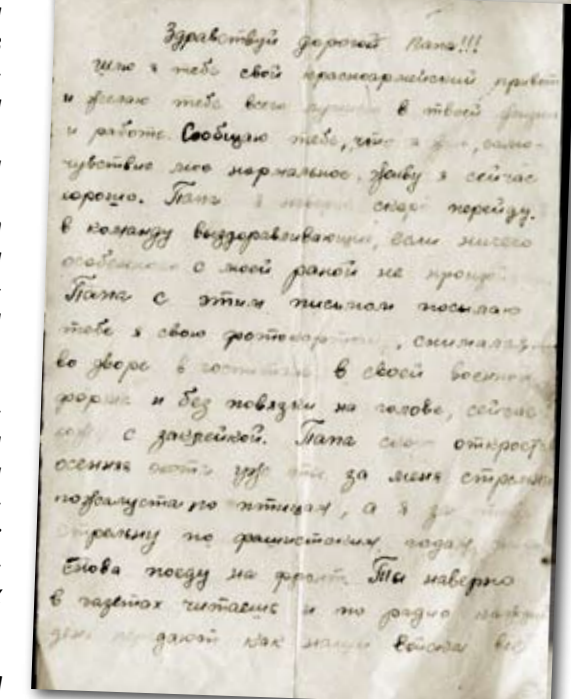 Здравствуй дорогой Папа!!!
шлю я тебе свой красноармейский привет
и желаю тебе всего лучшего в твоей жизни
и работе. Сообщаю тебе, что я жив, само-
чувствие мое нормальное. Живу я сейчас
хорошо. Папа я скоро перейду.
в команду выздоравливающих, если ничего
особенного с моей раной не
Папа с этим письмом посылаю
тебе я свою фотокарточку, снимался
во дворе в госпитале в своей военной
форме и без повязки на голове, сейчас
хожу с заклейкой. Папа скоро откроется
осенняя охота уж ты за меня стрельни
пожалуйста по птицам, а я за тебя
стрельну по фашистским гадам,
Снова поеду на фронт. Ты наверно
в газетах читаешь и по радио каждый
день передают как наши войска